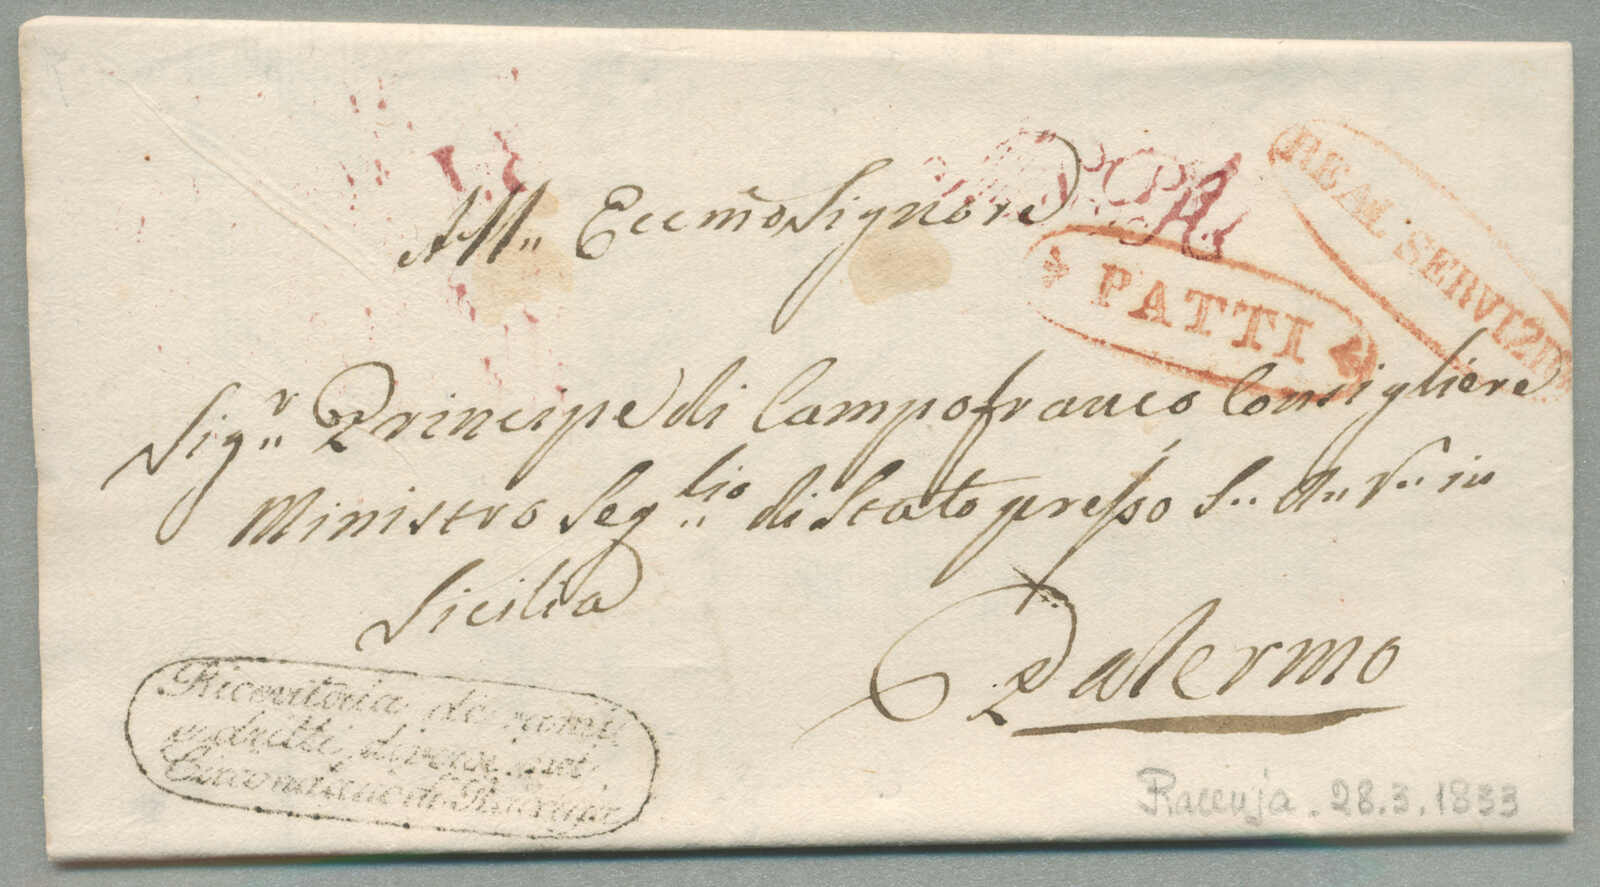 All,, Eccmo Signore
REAL SERVIZIO
PATTI
Sig,,r Principe di Campofranco Consigliere
Ministro Seg,,rio di Stato presso S,, A,, R,, in
Sicilia
Palermo
Ricevitoria dei rami
e dritti diversi nel
Circondario di Raccuja
Raccuja . 28.3.1833